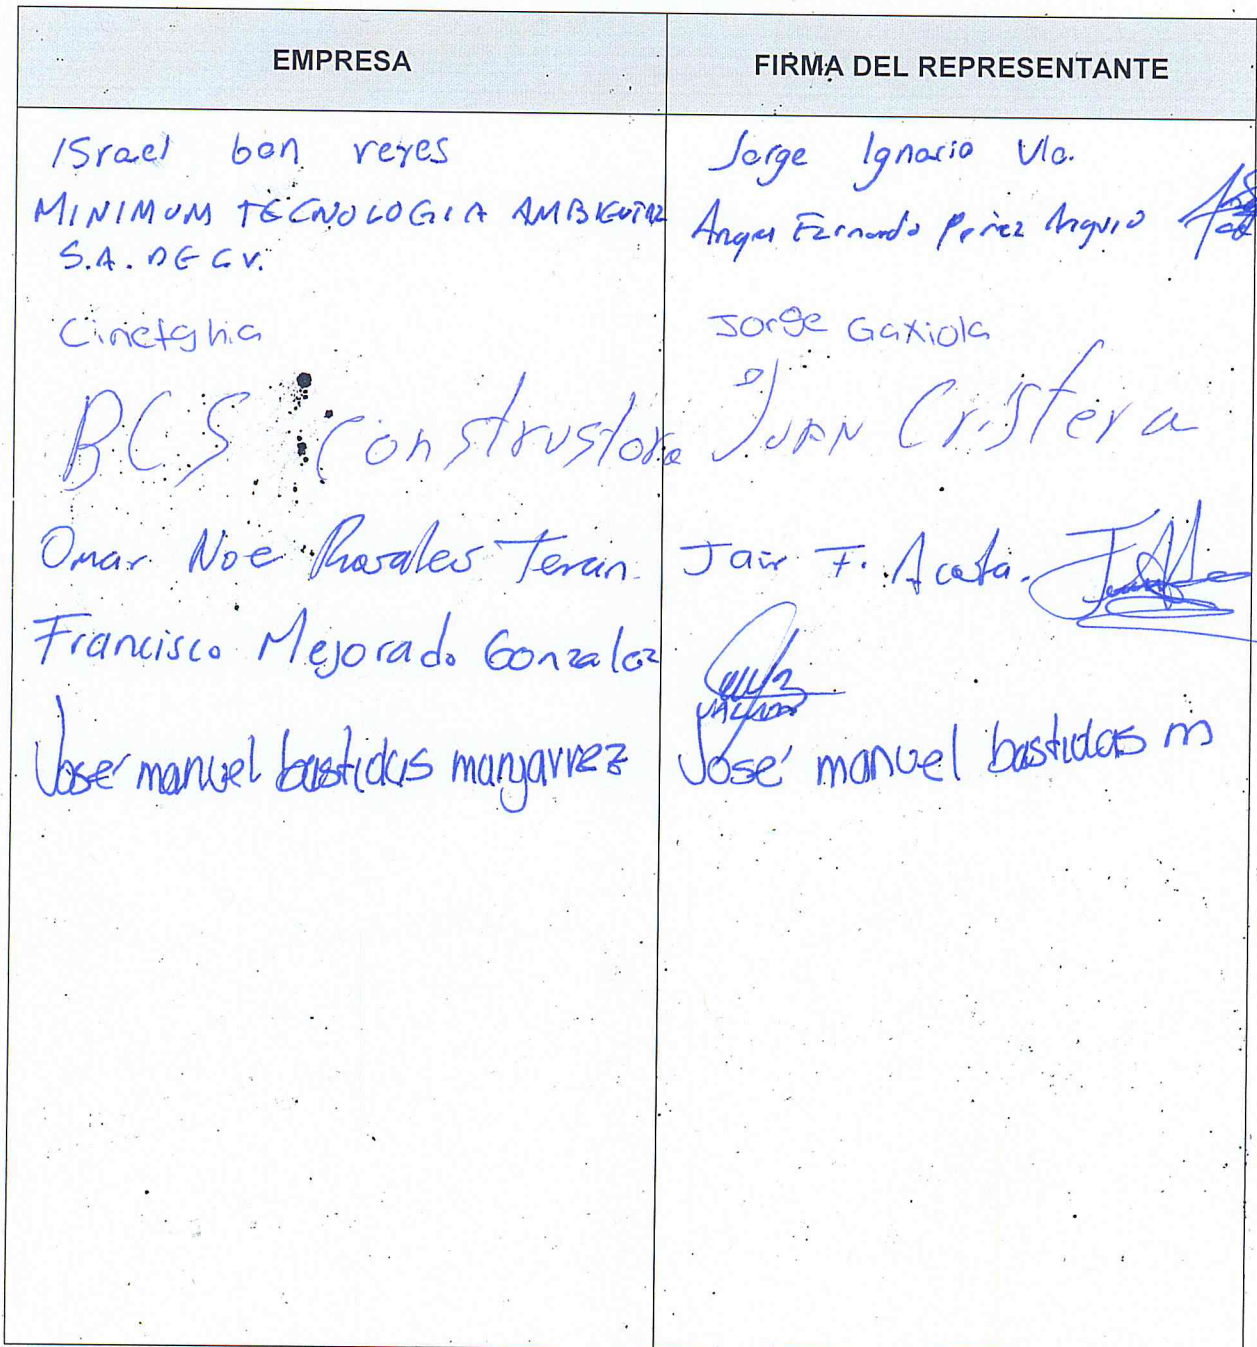 EMPRESA
FIRMA DEL REPRESENTANTE
Israel bon reyes
Jorge Ignacio
MINIMUM TECNOLOGIA
S.A. DE C.V.
Fernando Perez
Jorge Gaxiola
BCS construstora
JUAN Cristera
Omar Noe Rosales Teran.
Jair F. Acosta.
Francisco Mejorado Gonzalez
Jose manuel bastidas manjarrez
José manuel bastidas m